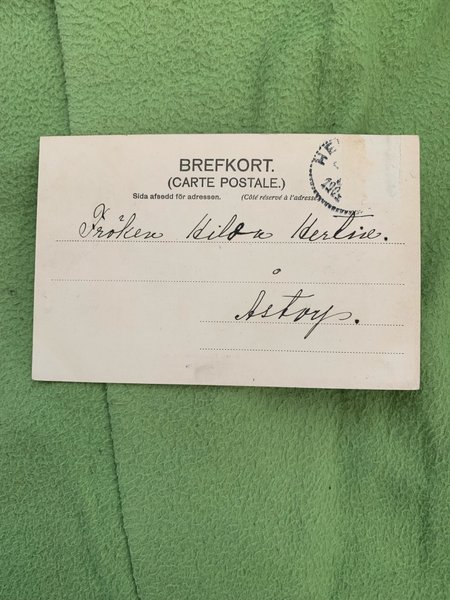 BREFKORT.
(CARTE POSTALE.)
Sida afsedd för adressen. (Côté réservé à l'adresse
HE
190
Fröken Hilda
å
Åstöy.